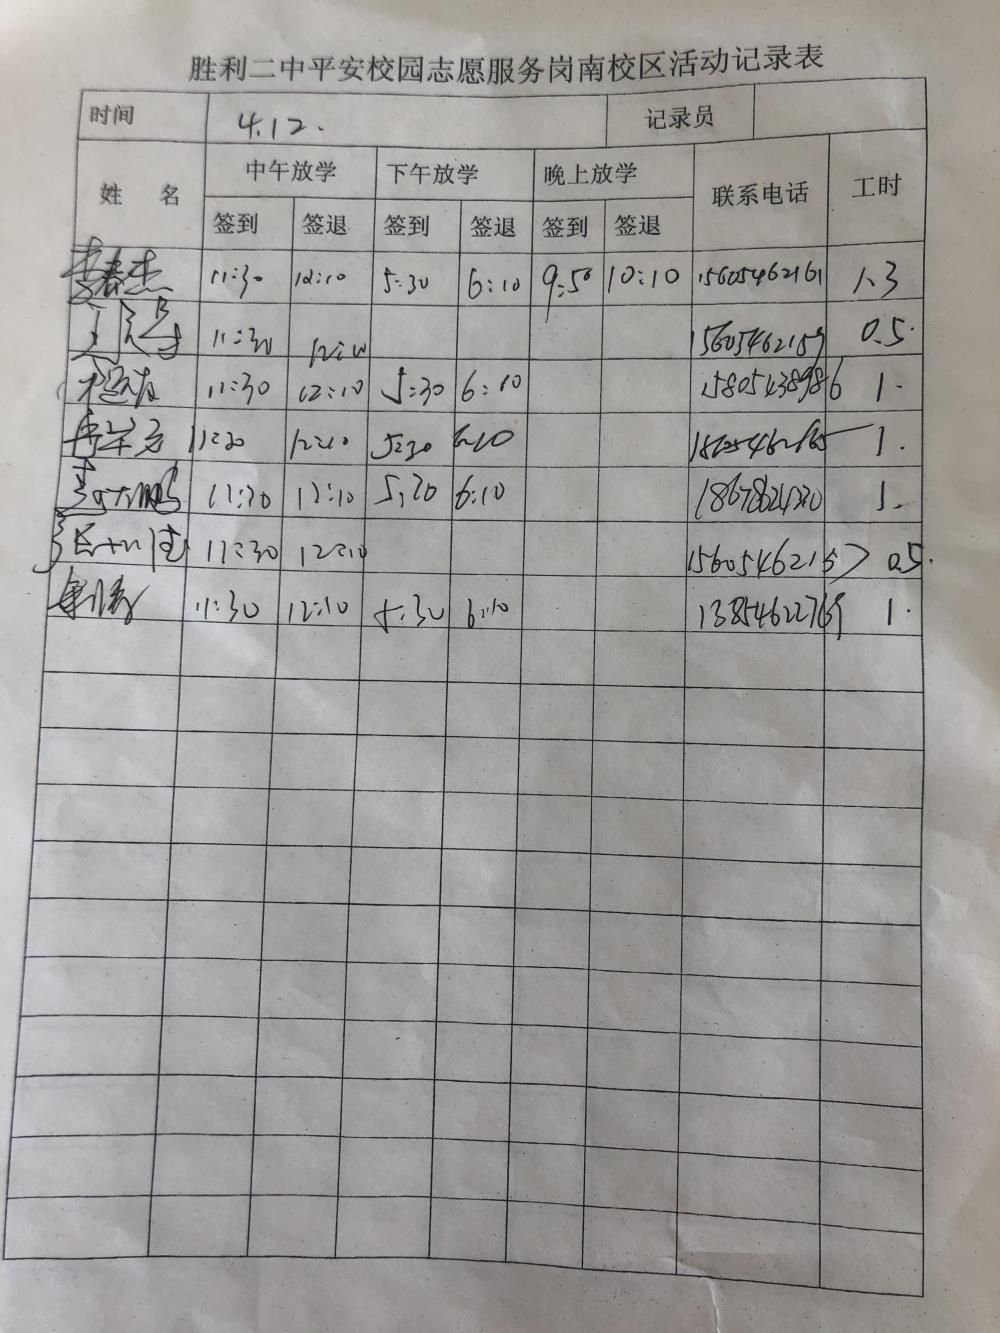 胜利二中平安校园志愿服务岗南校区活动记录表
时间 4.12. 记录员
姓 名 中午放学 下午放学 晚上放学 联系电话 工时
签到 签退 签到 签退 签到 签退
李春杰 11:30 12:10 5:30 6:10 9:50 10:10 15605462161 1.3
11:30 12:10 15605462159 0.5.
11:30 12:10 5:30 6:10 15805438986 1.
11:30 12:10 5:30 6:10 15605462165 1.
11:30 12:10 5:30 6:10 1.
11:30 12:10 0.5.
11:30 12:10 5:30 6:10 13854622769 1.